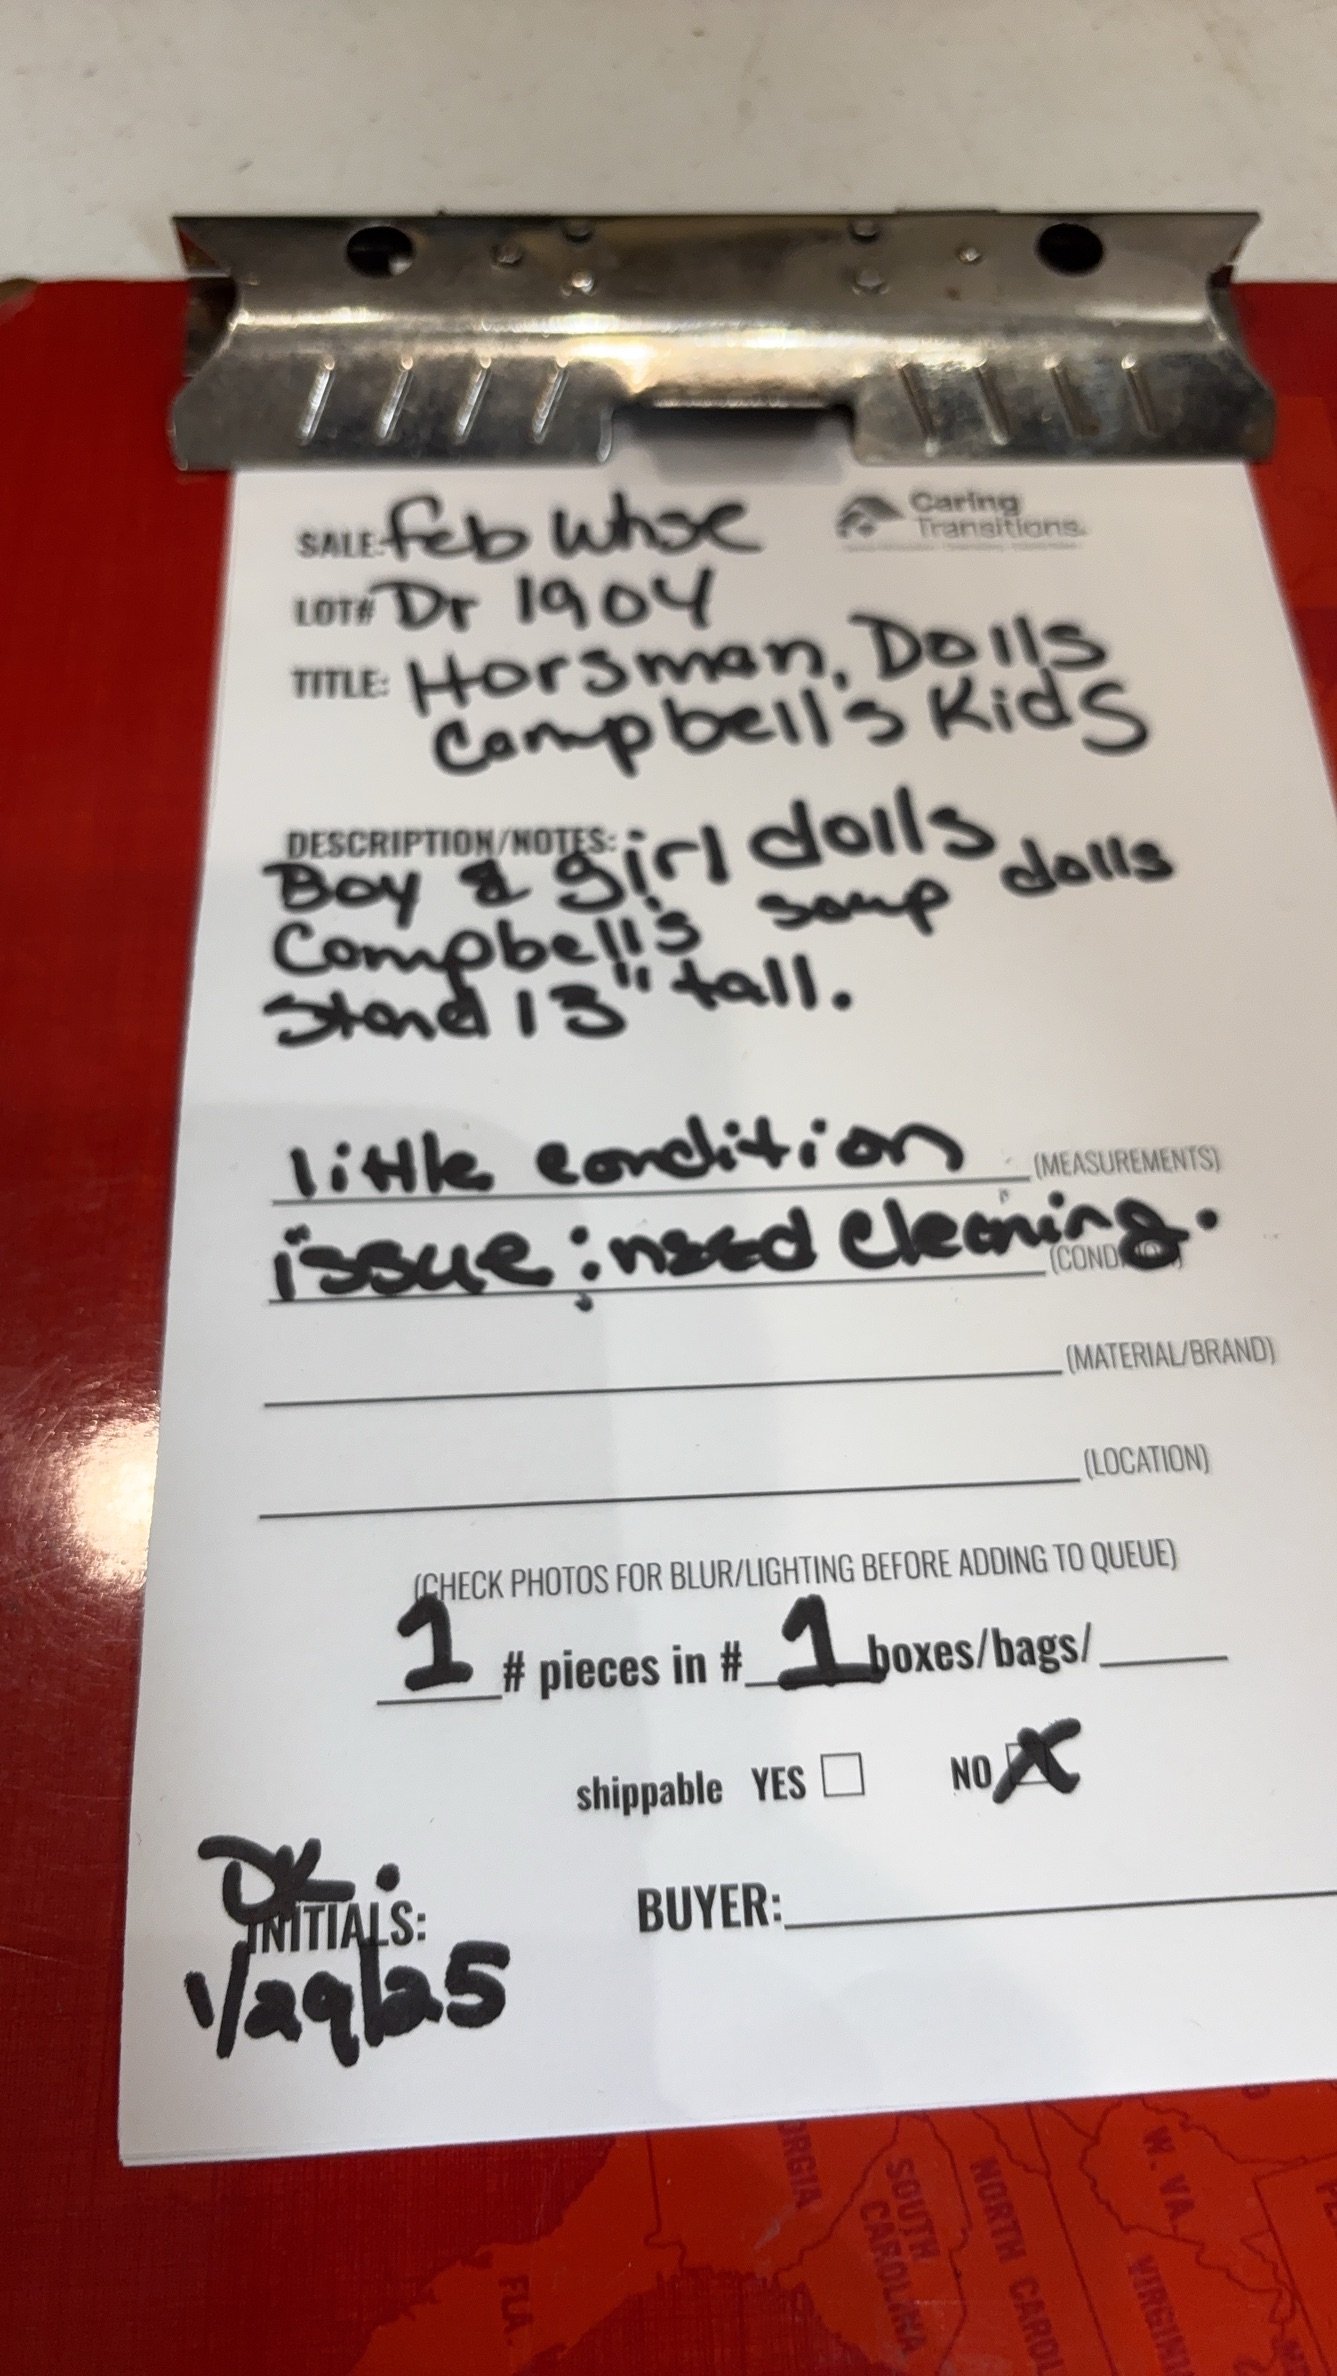 Caring
Transitions.
SALE: feb whse
LOT# Dr 1904
TITLE: Horsman, Dolls
Campbell's Kids
DESCRIPTION/NOTES:
Boy & girl dolls
Campbell's soup dolls
Stand 13" tall.
little condition (MEASUREMENTS)
issue: need cleaning. (CONDITION)
(MATERIAL/BRAND)
(LOCATION)
(CHECK PHOTOS FOR BLUR/LIGHTING BEFORE ADDING TO QUEUE)
1 # pieces in # 1 boxes/bags/
shippable YES NO X
DK.
INITIALS: BUYER:
1/29/25
FLA.
SOUTH
CAROLINA
W. VA.